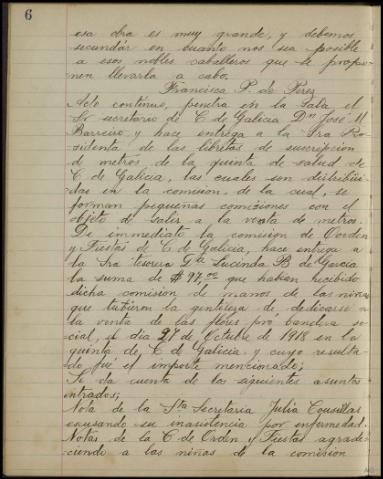 6
esa obra es muy grande, y debemos
secundar en cuanto nos sea posible
a esos nobles caballeros que se propo-
nen llevarla a cabo.
Francisca P. de Perez
Acto continuo, penetra en la Sala, el
Sr secretario de C de Galicia Dn José M
Barreiro y hace entrega a la Sra Pre-
sidenta de las libretas de suscripcion
de metros de la quinta de salud de
C de Galicia, las cuales son distribui-
das en la comision, de la cual, se
forman pequeñas comisiones con el
objeto de salir a la venta de metros.
De immediato la comision de Orden
y Fiestas de C. de Galicia, hace entrega a
la Sra tesorera Dª Lucinda B de Garcia
la suma de $ 97,00 que habian recibido
dicha comision de manos de las niñas
que tubieron la gentileza de dedicarse a
la venta de las flores pró bandera so-
cial, el dia 27 de Octubre de 1918 en la
quinta de C de Galicia y cuyo resulta
do fué el importe mencionado;
Se da cuenta de los siguientes asuntos
entrados;
Nota de la Sta Secretaria Julia Cousillas
excusando su inasistencia por enfermedad.
Notas de la C de Orden y Fiestas agrade-
ciendo a las niñas de la comision